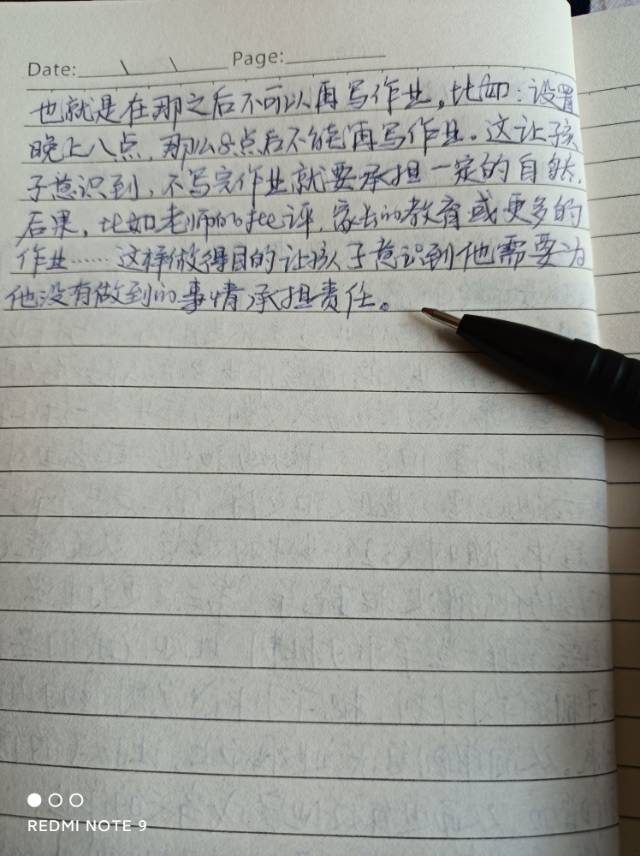 Date: \ \ Page:
也就是在那之后不可以再写作业，比如：设置
晚上八点，那么8点后不能再写作业。这让孩
子意识到，不写完作业就要承担一定的自然
后果，比如老师的批评，家长的教育或更多的
作业……这样做得目的让孩子意识到他需要为
他没有做到的事情承担责任。
REDMI NOTE 9